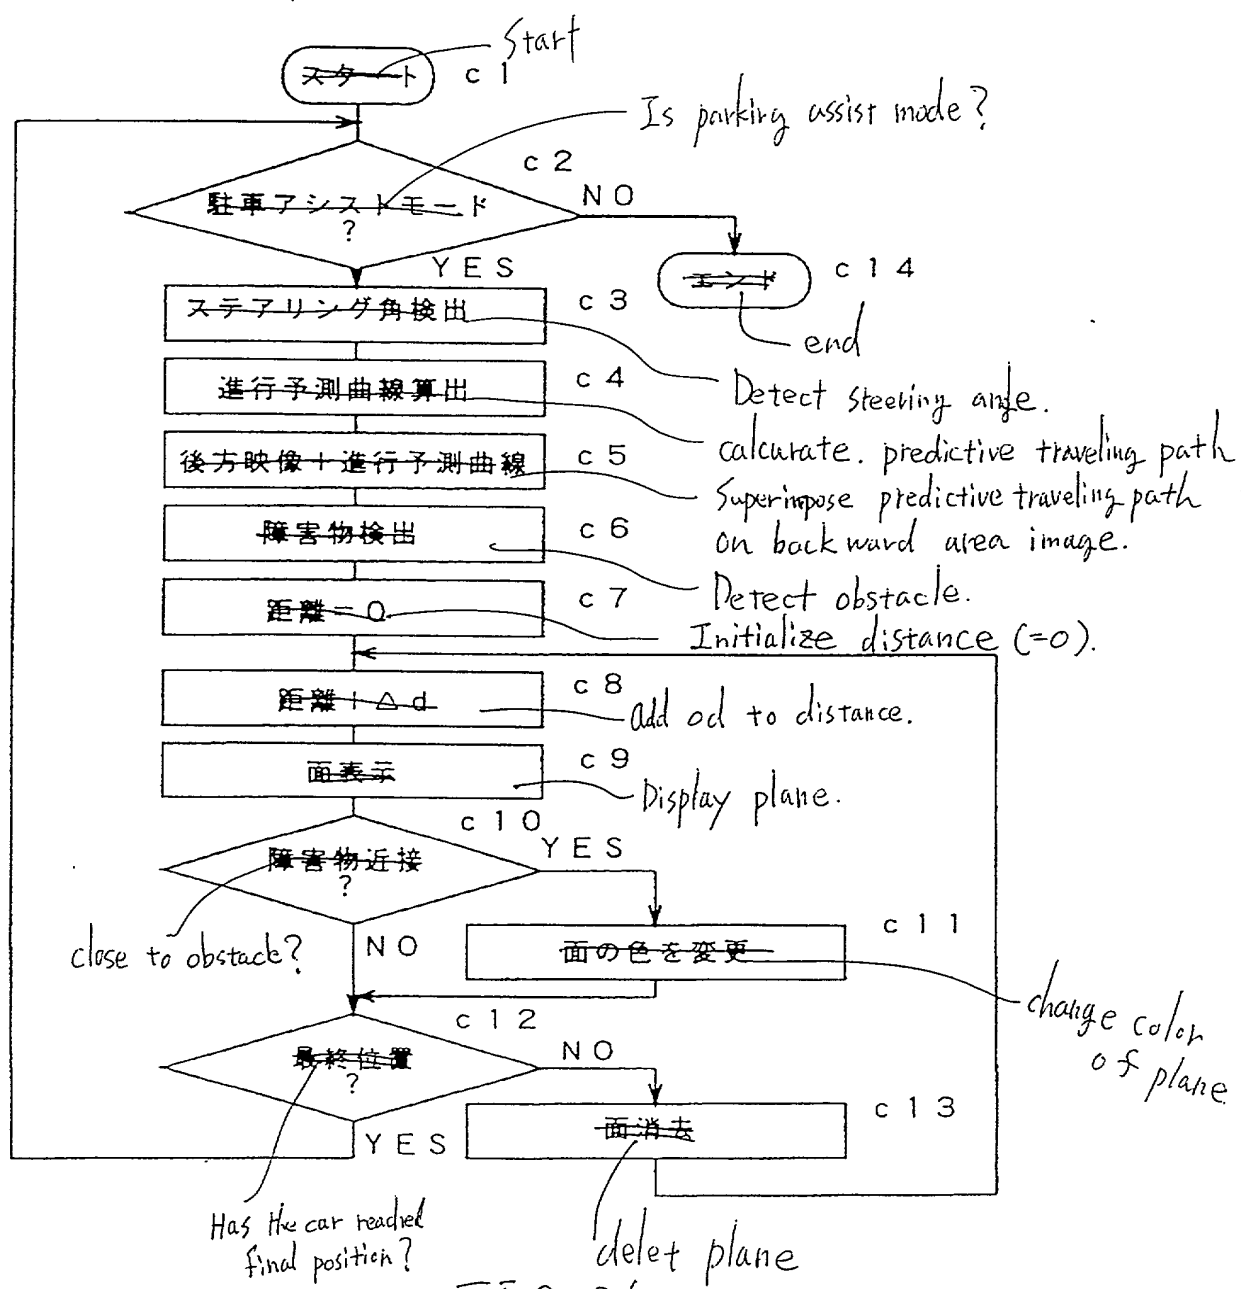 スタート
c1
Start
Is parking assist mode?
c2
駐車アシストモード
?
NO
YES
エンド
c14
end
ステアリング角検出
c3
Detect steering angle.
進行予測曲線算出
c4
calcurate. predictive traveling path
後方映像+進行予測曲線
c5
Superimpose predictive traveling path
on backward area image.
障害物検出
c6
Detect obstacle.
距離=0
c7
Initialize distance (=0).
距離+△d
c8
add od to distance.
面表示
c9
Display plane.
c10
障害物近接
?
YES
close to obstack?
NO
面の色を変更
c11
change color
of plane
c12
最終位置
?
NO
YES
面消去
c13
Has the car reached
final position?
delet plane